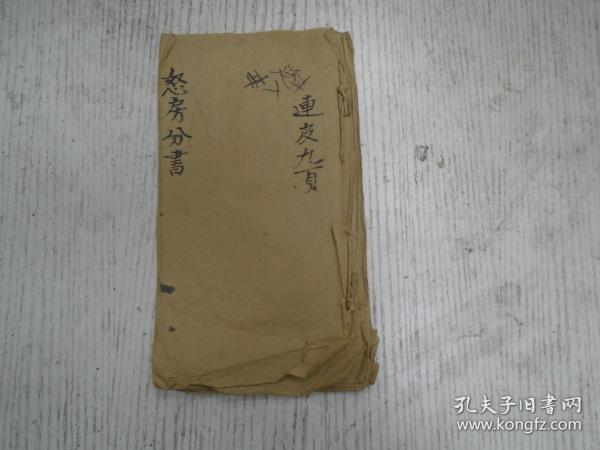 連皮九頁
恕房分書
孔夫子旧書网
www.kongfz.com